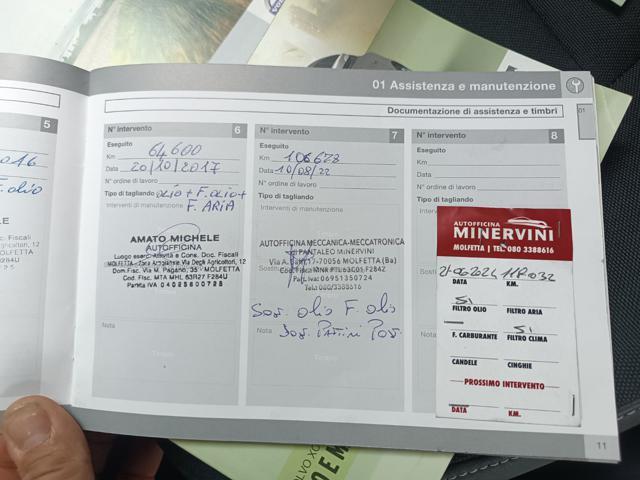 01 Assistenza e manutenzione
Documentazione di assistenza e timbri
01
5
2016
F. olio
N° intervento 6
Eseguito
Km 64600
Data 20/10/2017
N° ordine di lavoro
Tipo di tagliando OLIO + F. OLIO +
Interventi di manutenzione F. ARIA
AMATO MICHELE
AUTOFFICINA
MOLFETTA - Zona Artigianale Via Degli Agricoltori, 12
Dom. Fisc. Via M. Pagano, 35 - MOLFETTA
Cod. Fisc. MTA MHL 63P27 F284U
Partita IVA 04025600725
Nota
N° intervento 7
Eseguito
Km 106628
Data 10/08/22
N° ordine di lavoro
Tipo di tagliando
Interventi di manutenzione
AUTOFFICINA MECCANICA-MECCATRONICA
PANTALEO MINERVINI
70056 MOLFETTA (Ba)
Part. Iva: 06951350724
Tel.: 080/3388616
Sos. olio F. olio
Nota Sos. Pattini Pos.
N° intervento 8
Eseguito
Km
Data
N° ordine di lavoro
Tipo di tagliando
Nota
AUTOFFICINA
MINERVINI
MOLFETTA | TEL. 080 3388616
DATA KM.
SI
FILTRO OLIO FILTRO ARIA
SI
F. CARBURANTE FILTRO CLIMA
CANDELE CINGHIE
PROSSIMO INTERVENTO
DATA KM.
11